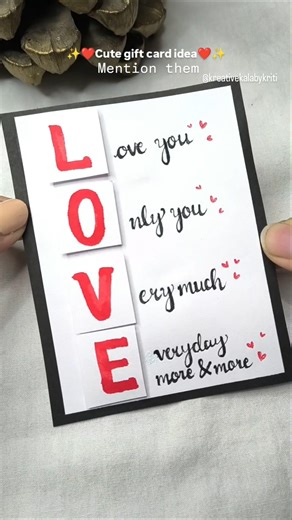 ✨❤️Cute gift card idea❤️✨
Mention them
@kreativekalabykriti
L ove you
O nly you
V ery much
E veryday
more & more